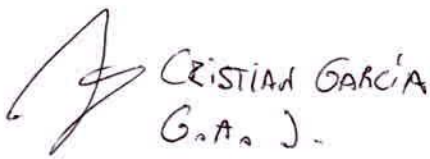 CRISTIAN GARCÍA
G.A. J.